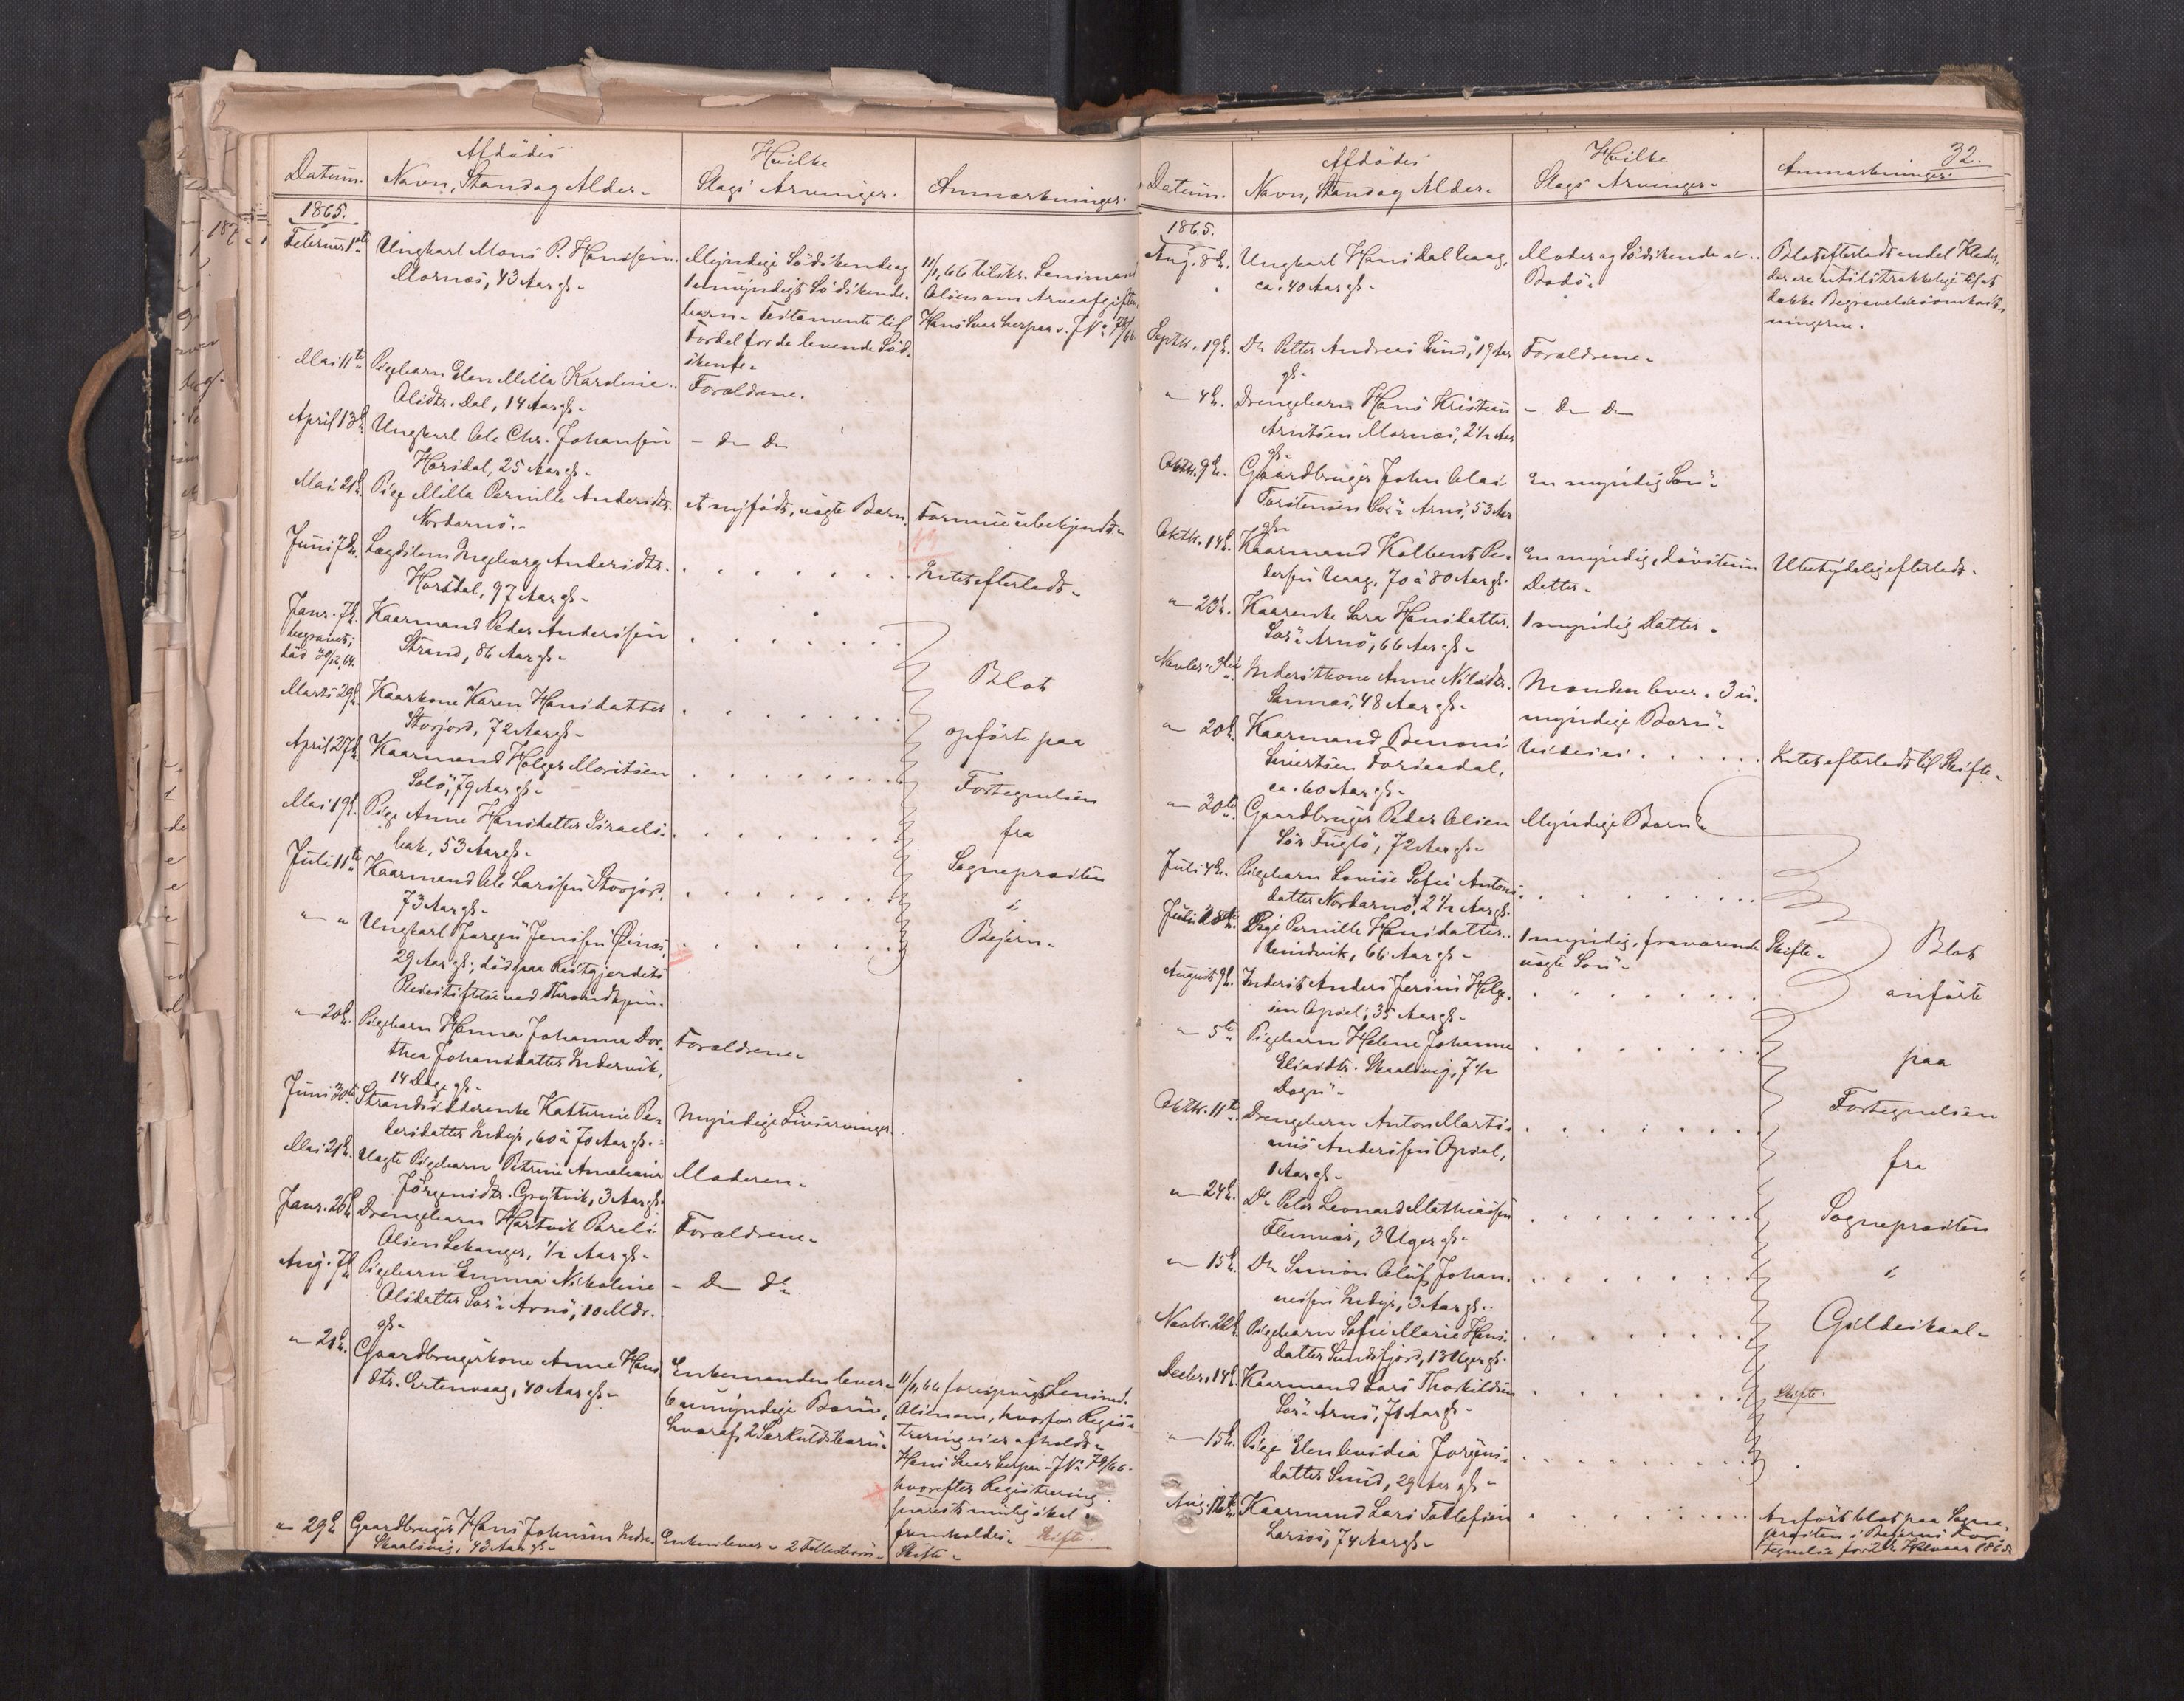 Datum.
Afdødes
Navn, Stand og Alder.
Hvilke
Slags Arvinger.
Anmærkninger.
1865.
Februar 1ste
Ungkarl Mons P. Hanssen
Mornæs, 43 Aar gl.
Myndige Sødskende og
1 umyndigt Sødskende-
barn. Testamente til
Fordel for de levende Sød-
skende.
11/1 66 tilskr. Lensmand
Olsen om Arveafgiften.
Hans Svar herpaa v. J.No 78/66.
Mai 11te
Pigebarn Elen Milla Karoline
Olsdtr. Dal, 14 Aar gl.
Forældrene.
April 13de
Ungkarl Ole Chr. Johansen
Horsdal, 25 Aar gl.
- Do Do
Mai 21de
Pige Milla Pernille Andersdtr.
Nordarnø.
et nyfødt, uægte Barn.
Formue ubekjendt.
Juni 7de
Lægdslem Ingeborg Andersdtr.
Horsdal, 97 Aar gl.
Intet efterladt.
Janr. 7de
begravet;
død 30/12, 64.
Kaarmand Peder Anderssen
Strand, 86 Aar gl.
Marts 29de
Kaarkone Karen Hansdatter
Storjord, 72 Aar gl.
April 27de
Kaarmand Holger Moritsen
Solø, 79 Aar gl.
Mai 19de
Pige Anne Hansdatter Israels-
bak, 53 Aar gl.
Juli 11te
Kaarmand Ole Larssen Storjord,
73 Aar gl.
" "
Ungkarl Jørgen Jenssen Øinæs,
29 Aar gl.; død paa Reitgjerdets
Pleiestiftelse ved Throndhjem.
Blot
opførte paa
Fortegnelsen
fra
Sognepræsten
i
Bejern.
" 20de
Pigebarn Hanna Johanna Dor-
thea Johansdatter Indervik,
14 Dage gl.
Forældrene.
Juni 30te
Strandsidderenke Katrine Pe-
dersdatter Indyr, 60 à 70 Aar gl.
Myndige Livsarvinger.
Mai 21de
Uægte Pigebarn Petrine Amalia
Jørgensdtr. Grytvik, 3 Aar gl.
Moderen.
Janr. 26de
Drengebarn Hartvik Pareli
Olsen Lekanger, 1/2 Aar gl.
Forældrene.
Aug. 7de
Pigebarn Emma Nikoline
Olsdatter Sør-Arnø, 10 Mdr.
gl.
- Do Do
" 21de
Gaardbrugerkone Anne Hans-
dtr. Ertenvaag, 40 Aar gl.
Enkemanden lever.
6 umyndige Børn,
hvoraf 2 Særkuldsbørn.
11/1 66 forespurgt Lensmd.
Olsen om, hvorfor Regis-
trering ei er afholdt.
Hans Svar herpaa J.No 79/66.
hvorefter Registrering
snarest mulig skal
fremholdes. Skifte.
" 29de
Gaardbruger Hans Johnsen Indre-
Skaalsvig, 43 Aar gl.
Enken lever. 2 Fællesbørn.
Skifte.
32.
Datum.
Afdødes
Navn, Stand og Alder.
Hvilke
Slags Arvinger.
Anmærkninger.
1865.
Aug. 8de
Ungkarl Hans Dal Vaag,
ca. 40 Aar gl.
Moder og Sødskende i
Bodø.
Blot efterladt endel Klæder,
der ere utilstrækkelige til at
dække Begravelsesomkost-
ningerne.
Septbr. 19de
Do Petter Andreas Sund, 19 Aar
gl.
Forældrene.
" 4de
Drengebarn Hans Kristian
Arntsen Mornæs, 2 1/2 Aar
gl.
- Do Do
Oktbr. 9de
Gaardbruger John Olai
Torstensen Sør-Arnø, 53 Aar
gl.
En myndig Søn.
Oktbr. 14de
Kaarmand Kolbent Pe-
dersen Vaag, 70 à 80 Aar gl.
En myndig, døvstum
Datter.
Ubetydelig efterladt.
" 23de
Kaarenke Sara Hansdatter
Sør-Arnø, 66 Aar gl.
1 myndig Datter.
Novbr. 9de
Inderstkone Anne Nilsdtr.
Sannæs, 48 Aar gl.
Manden lever. 3 u-
myndige Børn.
" 20de
Kaarmand Benoni
Sivertsen Forsaadal,
ca. 60 Aar gl.
Intet efterladt til Skifte.
" 30te
Gaardbruger Peder Olsen
Sør Fuglø, 72 Aar gl.
Myndige Børn.
Juli 4de
Pigebarn Lovise Sofie Antons-
datter Nordarnø, 2 1/2 Aar gl.
Juli 28de
Pige Pernille Hansdatter
Vindvik, 66 Aar gl.
1 myndig, fraværende
uægte Søn.
Skifte.
August 9de
Inderst Anders Jersin Helge-
sen Opsal, 35 Aar gl.
" 5te
Pigebarn Helene Johanna
Eliasdtr. Skaalsvig, 7 1/2
Døgn.
Oktbr. 11te
Drengebarn Anton Marti-
nus Anderssen Opsal,
1 Aar gl.
" 24de
Do Peter Leonard Mathiassen
Fleinvær, 3 Uger gl.
" 15de
Do Simon Oluf Johan-
nessen Indyr, 3 Aar gl.
Novbr. 22de
Pigebarn Sofie Marie Hans-
datter Sundsfjord, 13 Uger gl.
Decbr. 14de
Kaarmand Lars Thorkildsen
Sør-Arnø, 71 Aar gl.
Skifte.
" 15de
Pige Elen Jørgens-
datter Sund, 29 Aar gl.
Blot
anførte
paa
Fortegnelsen
fra
Sognepræsten
i
Gildeskaal.
Aug. 12te
Kaarmand Lars Tollefsen
Larsos, 74 Aar gl.
Anført blot paa Sogne-
præsten i Bejerns For-
tegnelse for 2det Halvaar 1865.